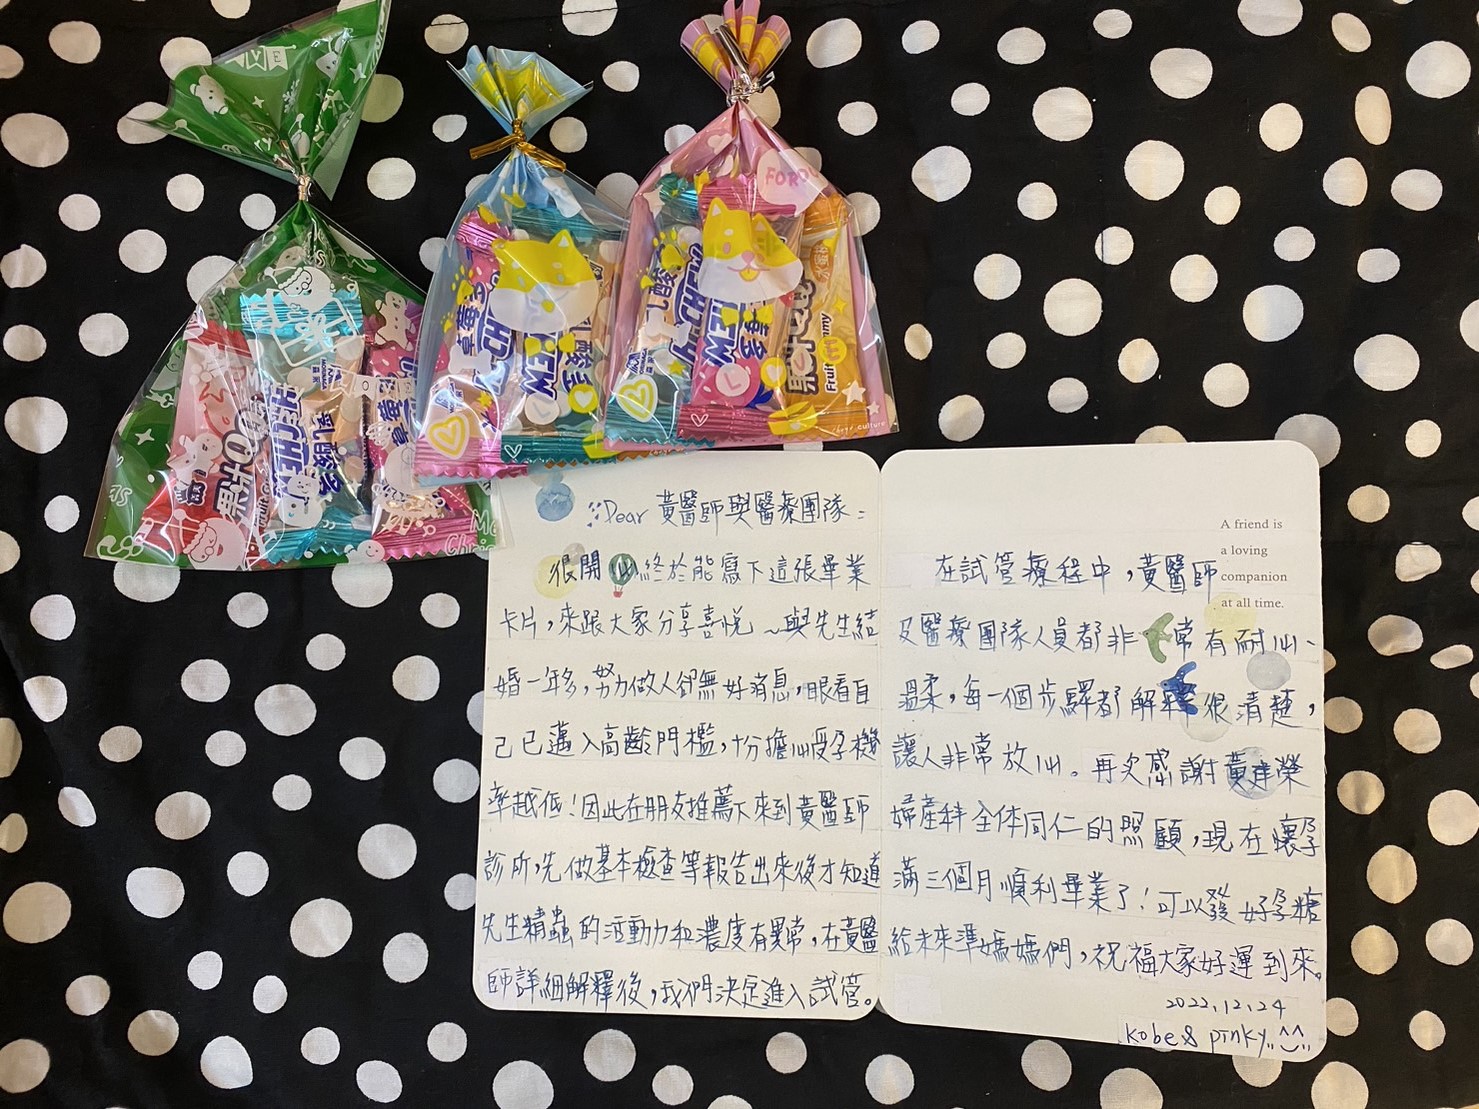 FOROU
水蜜
果汁
Fruit
Gummy
HI-CHEW
乳酸
草莓多
HI-CHEW
草莓多
乳酸多
HI-CHEW
HI-CHEW
乳酸多
草莓
Fruit
Me
Chris
culture
Dear 黃醫師與醫療團隊：
很開心終於能寫下這張畢業
卡片，來跟大家分享喜悅～與先生結
婚一年多，努力做人卻無好消息，眼看自
己已邁入高齡門檻，十分擔心受孕機
率越低！因此在朋友推薦下來到黃醫師
診所，先做基本檢查等報告出來後才知道
先生精蟲的活動力和濃度有異常，在黃醫
師詳細解釋後，我們決定進入試管。
A friend is
a loving
companion
at all time.
在試管療程中，黃醫師
及醫療團隊人員都非常有耐心、
溫柔，每一個步驟都解釋很清楚，
讓人非常放心。再次感謝黃建榮
婦產科全体同仁的照顧，現在懷孕
滿三個月順利畢業了！可以發好孕糖
給未來準媽媽們，祝福大家好運到來。
2022.12.24
kobe & pinky